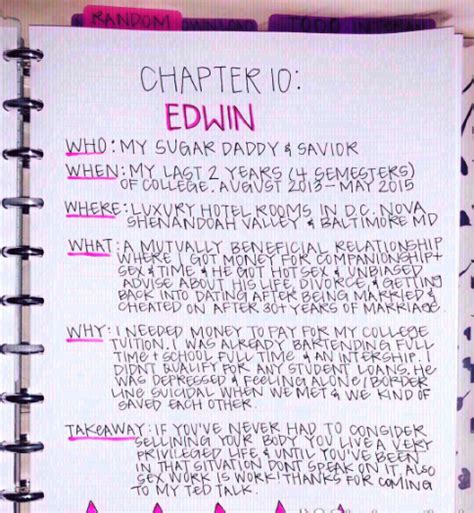 RANDOM
TODO
CHAPTER 10:
EDWIN
WHO: MY SUGAR DADDY & SAVIOR
WHEN: MY LAST 2 YEARS (4 SEMESTERS)
OF COLLEGE. AUGUST 2013-MAY 2015
WHERE: LUXURY HOTEL ROOMS IN D.C. NOVA
SHENANDOAH VALLEY & BALTIMORE MD
WHAT: A MUTUALLY BENEFICIAL RELATIONSHIP
WHERE I GOT MONEY FOR COMPANIONSHIP+
SEX & TIME & HE GOT HOT SEX & UNBIASED
ADVISE ABOUT HIS LIFE, DIVORCE, & GETTING
BACK INTO DATING AFTER BEING MARRIED &
CHEATED ON AFTER 30+ YEARS OF MARRIAGE.
WHY: I NEEDED MONEY TO PAY FOR MY COLLEGE
TUITION. I WAS ALREADY BARTENDING FULL
TIME + SCHOOL FULL TIME & AN INTERSHIP. I
DIDNT QUALIFY FOR ANY STUDENT LOANS. HE
WAS DEPRESSED & FEELING ALONE/BORDER
LINE SUICIDAL WHEN WE MET & WE KIND OF
SAVED EACH OTHER.
TAKEAWAY: IF YOU'VE NEVER HAD TO CONSIDER
SELLINING YOUR BODY YOU LIVE A VERY
PRIVILEGED LIFE & UNTIL YOU'VE BEEN
IN THAT SITUATION DONT SPEAK ON IT. ALSO
SEX WORK IS WORK! THANKS FOR COMING
TO MY TED TALK.